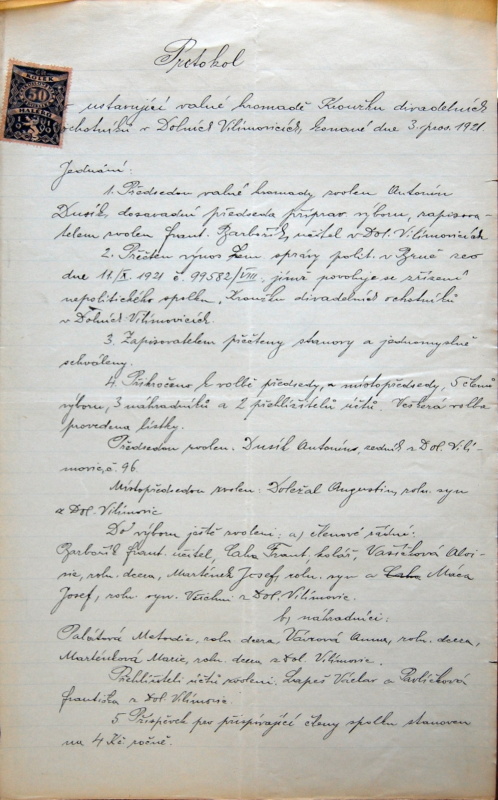 Protokol
KOLEK
50
o ustavující valné hromadě Kroužku divadelních
ochotníků v Dolních Vilímovicích, konané dne 3. pros. 1921
Jednání:
1. Předsedou valné hromady zvolen Antonín
Dusík, dosavadní předseda příprav. výboru, zapisova-
telem zvolen Frant. Barbořík, učitel v Dol. Vilímovicích
2. Přečten výnos Zem. správy polit. v Brně ze
dne 11/X. 1921 č. 99582/VIII. jímž povoluje se zřízení
nepolitického spolku, Kroužku divadelních ochotníků
v Dolních Vilímovicích.
3. Zapisovatelem přečteny stanovy a jednomyslně
schváleny.
4. Přikročeno k volbě předsedy, a místopředsedy, 5 členů
výboru, 3 náhradníků a 2 přehlížitelů účtů. Veškerá volba
provedena lístky.
Předsedou zvolen: Dusík Antonín, z Dol. Vilí-
movic, č. 96.
Místopředsedou zvolen: Doležal Augustin, roln. syn
z Dol. Vilímovic
Do výboru ještě zvoleni: a) členové řádní:
Barbořík Frant. učitel, Caha Frant., kolář, Vašíčková Aloi-
sie, roln. dcera, Martének Josef, roln. syn a Caha Máca
Josef, roln. syn. Všichni z Dol. Vilímovic.
b, náhradníci:
Palátová Metodie, roln. dcera Vávrová Anna, roln. dcera,
Marténková Marie, roln. dcera z Dol. Vilímovic.
Přehlížiteli účtů zvoleni: Lapeš Václav a Pavlíčková
Františka z Dol. Vilímovic.
5. Příspěvek pro přispívající členy spolku stanoven
na 4 Kč ročně.